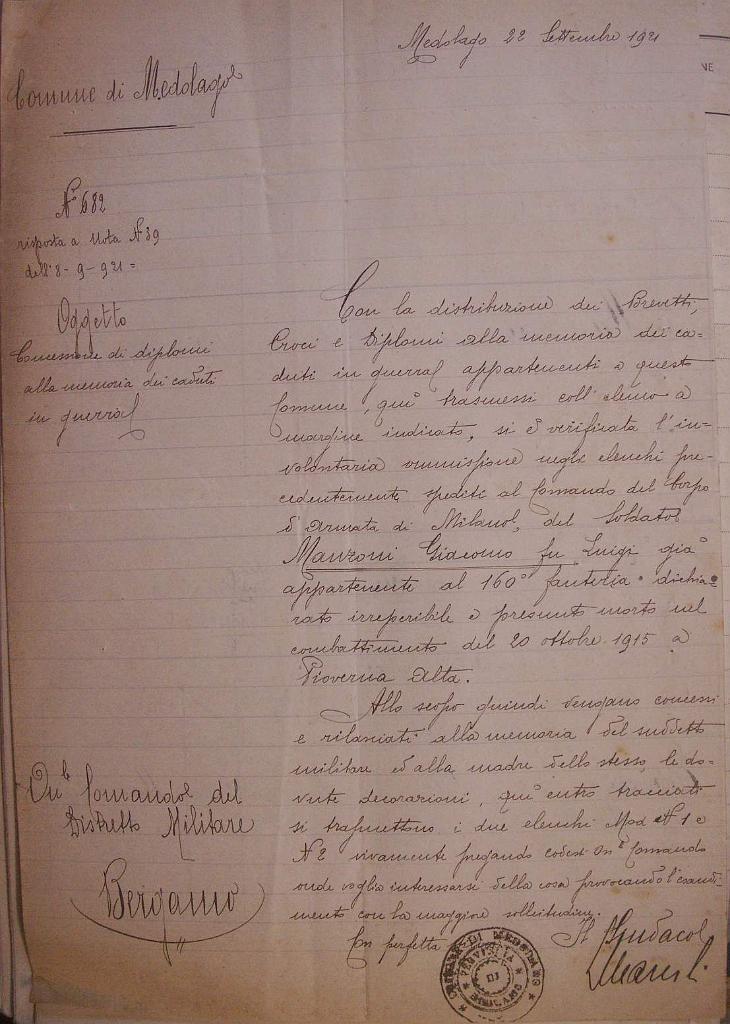 Medolago 22 Settembre 1921
Comune di Medolago
N° 682
risposta a Nota N 39
dell' 8-9-921=
Oggetto
Concessione di diplomi
alla memoria dei caduti
in guerra
Con la distribuzione dei Brevetti,
Croci e Diplomi alla memoria dei ca-
duti in guerra appartenenti a questo
Comune, qui trasmessi coll'elenco a
margine indicato, si è verificata l'in-
volontaria ommissione negli elenchi pre-
cedentemente spediti al Comando del Corpo
d'Armata di Milano, del Soldato
Manzoni Giacomo fu Luigi già
appartenente al 160° fanteria dichia-
rato irreperibile e presunto morto nel
combattimento del 20 ottobre 1915 a
Pioverna Alta.
Allo scopo quindi vengano concessi
e rilasciati alla memoria del suddetto
militare ed alla madre dello stesso, le do-
vute decorazioni, qui entro tracciati
si trasmettono i due elenchi Mod N 1 e
N 2 vivamente pregando codesto On° Comando
onde voglia interessarsi della cosa provocando l'esaudi-
mento con la maggiore sollecitudine.
Con perfetta
Il Sindaco
On. Comando del
Distretto Militare
Bergamo
COMUNE DI MEDOLAGO
PROVINCIA
DI
BERGAMO
NE